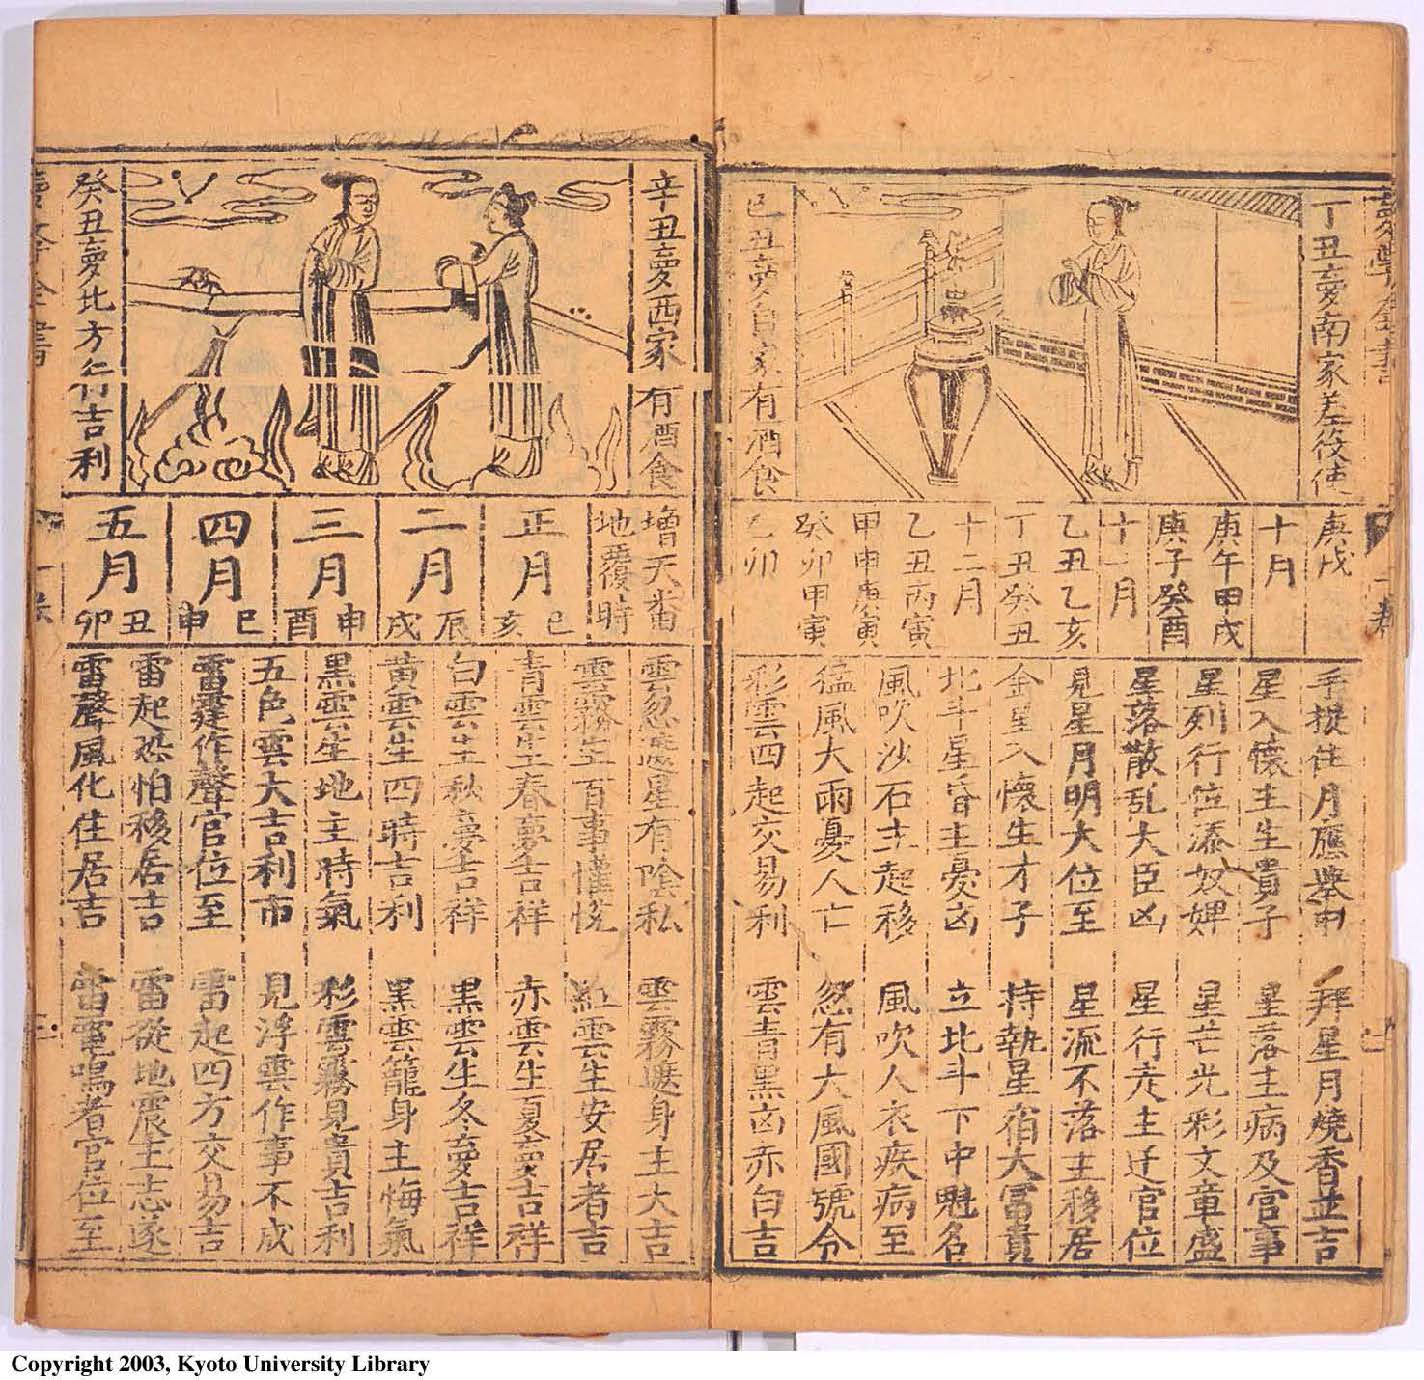 丁丑夢南家差役使
己丑夢自家有酒食
庚戌
十月
庚午甲戌
庚子癸酉
十一月
乙丑乙亥
丁丑癸丑
十二月
乙丑丙寅
甲申庚寅
癸卯甲寅
乙卯
手捉住月應舉中
拜星月燒香並吉
星入懷主生貴子
星落主病及官事
星列行位添奴婢
星芒光彩文章盛
星落散乱大臣凶
星行走主迁官位
見星月明大位至
星流不落主移居
金星入懷生才子
持執星宿大冨貴
北斗星昏主憂凶
立北斗下中魁名
風吹沙石主起移
風吹人衣疾病至
猛風大雨憂人亡
忽有大風國號令
彩雲四起交易利
雲青黑凶赤白吉
辛丑夢西家有酒食
癸丑夢北方行吉利
增天番
地覆時
正月
巳亥
二月
辰戌
三月
申酉
四月
巳申
五月
丑卯
雲忽遮星有陰私
雲霧遮身主大吉
雲霧生百事懽悅
紅雲生安居者吉
青雲生春夢吉祥
赤雲生夏夢吉祥
白雲生秋夢吉祥
黑雲生冬夢吉祥
黄雲生四時吉利
黑雲籠身主悔氣
黑雲生地主時氣
彩雲霧見貴吉利
五色雲大吉利市
見浮雲作事不成
雷霆作聲官位至
雷起四方交易吉
雷起恐怕移居吉
雷從地震主志遂
雷聲風化住居吉
雷電鳴者官位至
Copyright 2003, Kyoto University Library